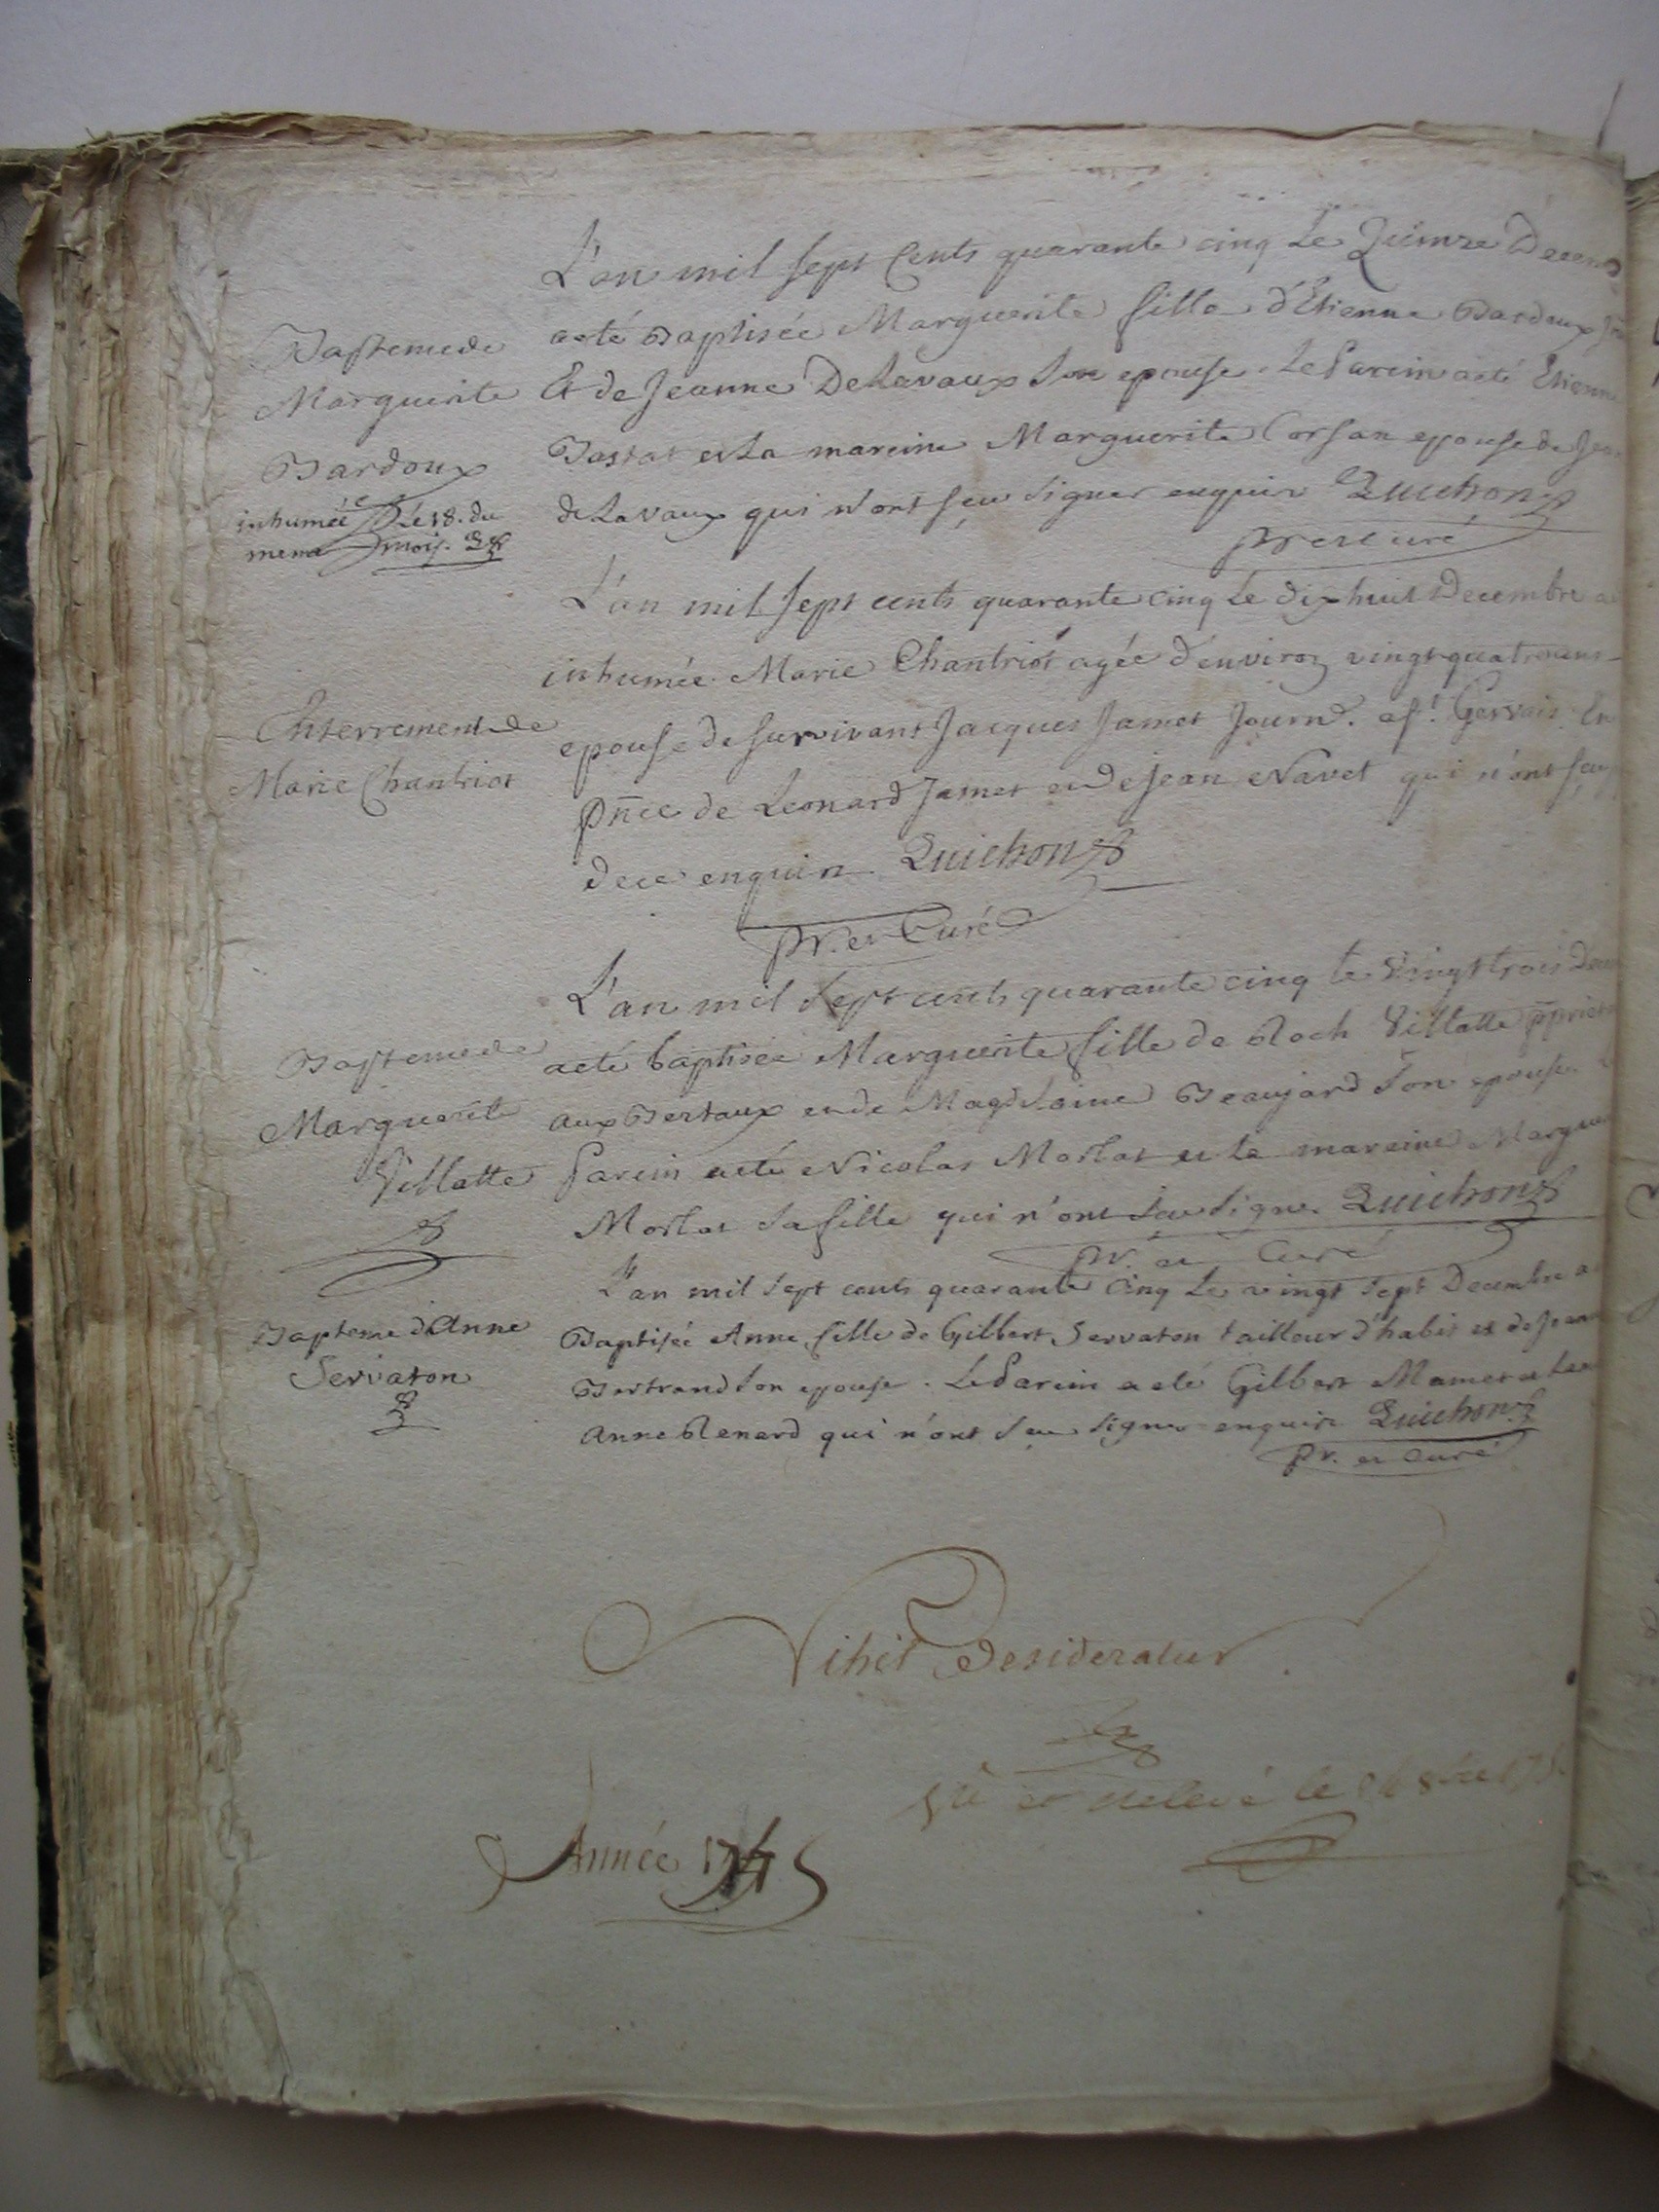 L'an mil sept Cents quarante cinq Le Quinze Decem
Basteme de
Marguerite
Bardoux
inhumée Le 18. du
meme mois.
acté Baptisée Marguerite fille d'Etienne Bardoux
Et de Jeanne DeLavaux Son epouse. Le Parein acté Etienne
et La mareine Marguerite Corsan epouse de Jea
de Lavaux qui n'ont sceu signer enquis Quichon
Pr et curé
L'an mil sept cents quarante cinq Le dix huit Decembre a
Enterrement de
Marie Chantriot
inhumée Marie Chantriot agée d'environ vingt quatre ans
epouse de survivant Jacques Jamet Journ. a St. Gervais. En
pnce de Leonard Jamet et de Jean Navet qui n'ont sceu
de ce enquis Quichon
pr. et Curé
L'an mil sept cents quarante cinq le vingt trois Decem
Basteme de
Marguerite
Villatte
acté baptisée Marguerite fille de Roch Villatte
aux Bertaux et de Magdelaine Beaujard son epouse.
Parein acté Nicolas Morlat et la mareine Margue
Morlat sa fille qui n'ont sceu signer Quichon
pr. et Curé
L'an mil sept cents quarante Cinq Le vingt sept Decembre a
Bapteme d'Anne
Servaton
Baptisée Anne fille de Gilbert Servaton tailleur d'habit et de Jeann
Bertrand son epouse. Le Parein a eté Gilbert Mamet et La
Anne Renard qui n'ont sceu signer enquis Quichon
pr. et curé
Nihil Desideratur
et relevé le
Année 1745